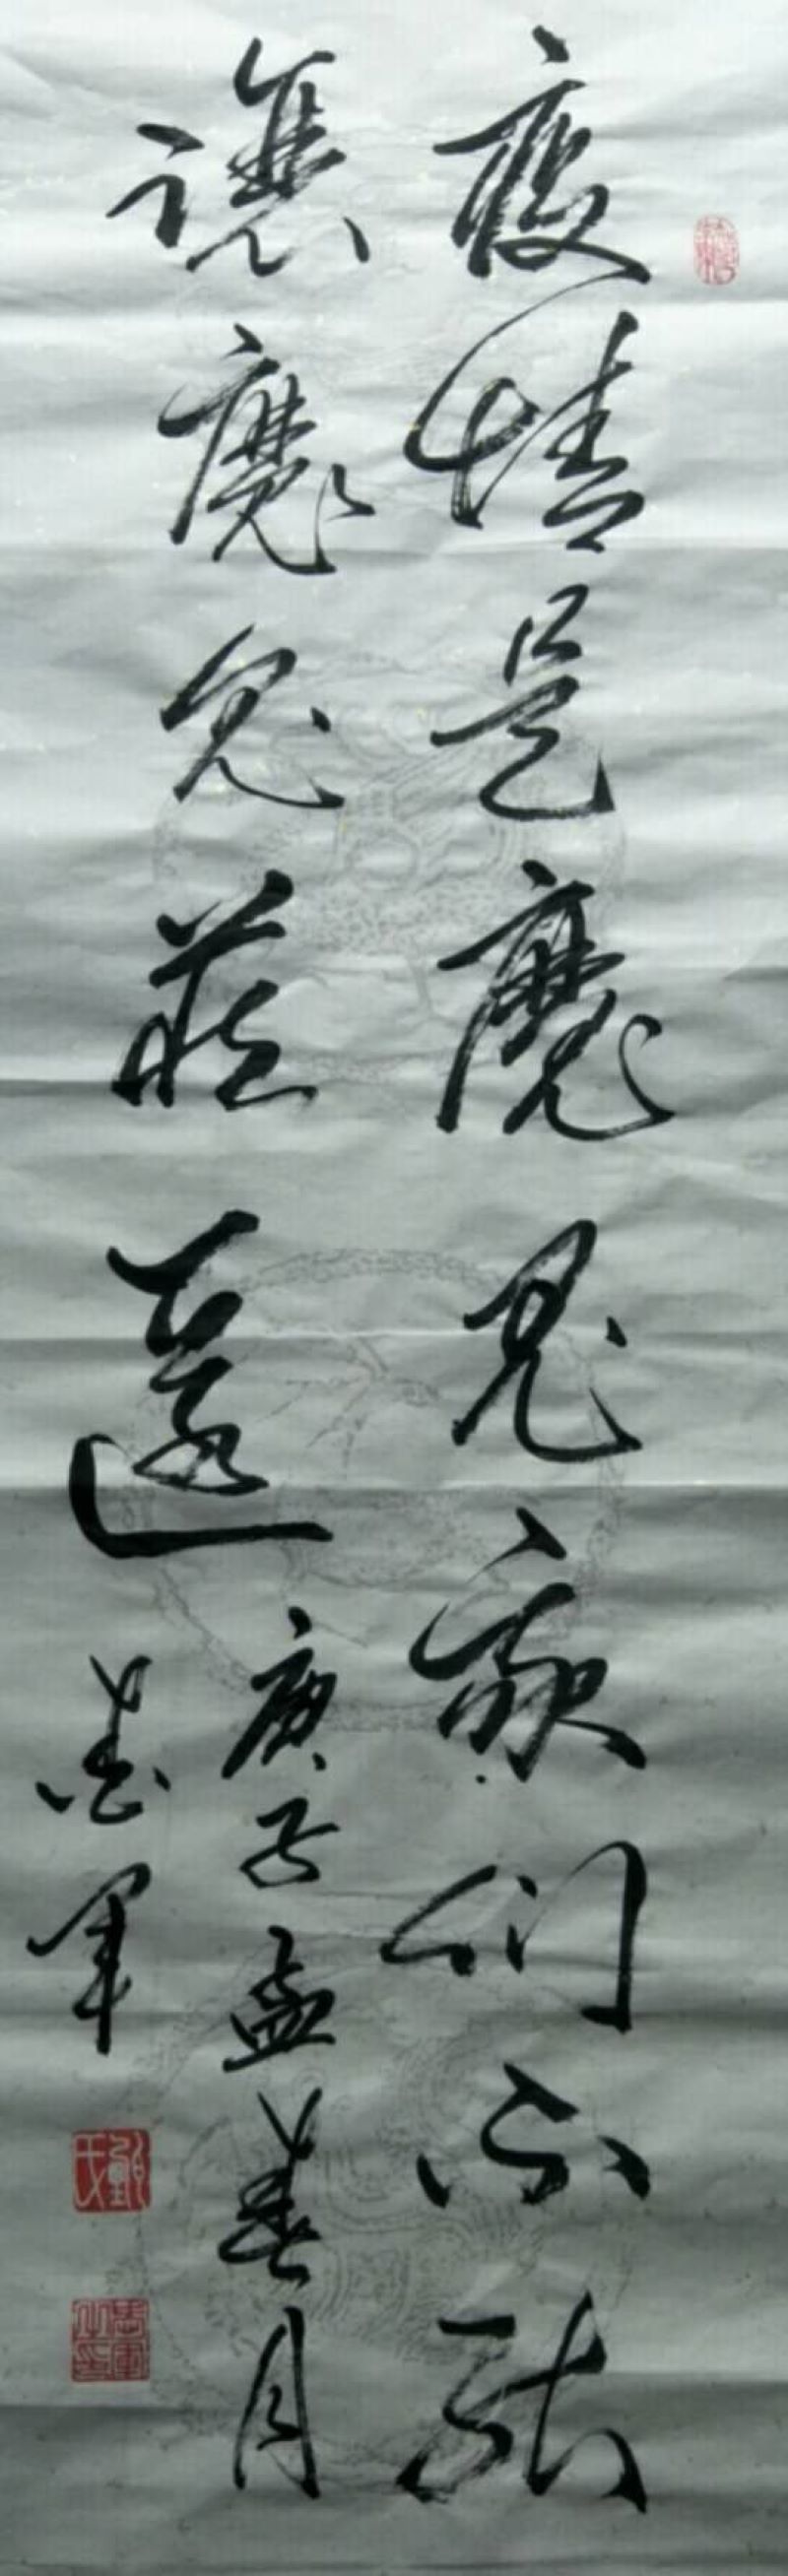 疫情是魔鬼我们不能
讓魔鬼藏匿
庚子孟春月
志军